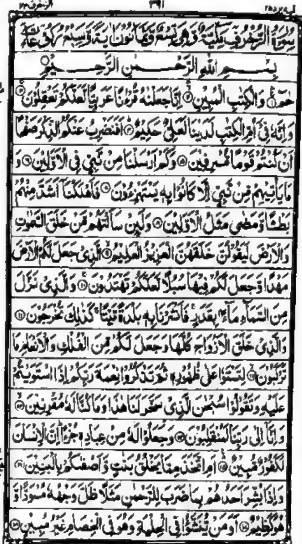 ٣٩١
بِسْمِ اللهِ الرَّحْمٰنِ الرَّحِيْمِ
حٰمٓ ۚ وَالْكِتٰبِ الْمُبِيْنِ ۙ اِنَّا جَعَلْنٰهُ قُرْءٰنًا عَرَبِيًّا لَّعَلَّكُمْ تَعْقِلُوْنَ ۚ
وَاِنَّهٗ فِيْٓ اُمِّ الْكِتٰبِ لَدَيْنَا لَعَلِيٌّ حَكِيْمٌ ؕ اَفَنَضْرِبُ عَنْكُمُ الذِّكْرَ صَفْحًا
اَنْ كُنْتُمْ قَوْمًا مُّسْرِفِيْنَ وَكَمْ اَرْسَلْنَا مِنْ نَّبِيٍّ فِي الْاَوَّلِيْنَ وَ
مَا يَاْتِيْهِمْ مِّنْ نَّبِيٍّ اِلَّا كَانُوْا بِهٖ يَسْتَهْزِءُوْنَ فَاَهْلَكْنَآ اَشَدَّ مِنْهُمْ
بَطْشًا وَّمَضٰى مَثَلُ الْاَوَّلِيْنَ وَلَئِنْ سَاَلْتَهُمْ مَّنْ خَلَقَ السَّمٰوٰتِ
وَالْاَرْضَ لَيَقُوْلُنَّ خَلَقَهُنَّ الْعَزِيْزُ الْعَلِيْمُ ۙ الَّذِيْ جَعَلَ لَكُمُ الْاَرْضَ
مَهْدًا وَّجَعَلَ لَكُمْ فِيْهَا سُبُلًا لَّعَلَّكُمْ تَهْتَدُوْنَ ۚ وَالَّذِيْ نَزَّلَ
مِنَ السَّمَآءِ مَآءًۢ بِقَدَرٍ ۚ فَاَنْشَرْنَا بِهٖ بَلْدَةً مَّيْتًا ۚ كَذٰلِكَ تُخْرَجُوْنَ
وَالَّذِيْ خَلَقَ الْاَزْوَاجَ كُلَّهَا وَجَعَلَ لَكُمْ مِّنَ الْفُلْكِ وَالْاَنْعَامِ مَا
تَرْكَبُوْنَ ۙ لِتَسْتَوٗا عَلٰى ظُهُوْرِهٖ ثُمَّ تَذْكُرُوْا نِعْمَةَ رَبِّكُمْ اِذَا اسْتَوَيْتُمْ
عَلَيْهِ وَتَقُوْلُوْا سُبْحٰنَ الَّذِيْ سَخَّرَ لَنَا هٰذَا وَمَا كُنَّا لَهٗ مُقْرِنِيْنَ ۙ
وَاِنَّآ اِلٰى رَبِّنَا لَمُنْقَلِبُوْنَ وَجَعَلُوْا لَهٗ مِنْ عِبَادِهٖ جُزْءًا ؕ اِنَّ الْاِنْسَانَ
لَكَفُوْرٌ مُّبِيْنٌ ؕ اَمِ اتَّخَذَ مِمَّا يَخْلُقُ بَنٰتٍ وَّاَصْفٰكُمْ بِالْبَنِيْنَ
وَاِذَا بُشِّرَ اَحَدُهُمْ بِمَا ضَرَبَ لِلرَّحْمٰنِ مَثَلًا ظَلَّ وَجْهُهٗ مُسْوَدًّا وَّ
هُوَ كَظِيْمٌ اَوَمَنْ يُّنَشَّؤُا فِي الْحِلْيَةِ وَهُوَ فِي الْخِصَامِ غَيْرُ مُبِيْنٍ